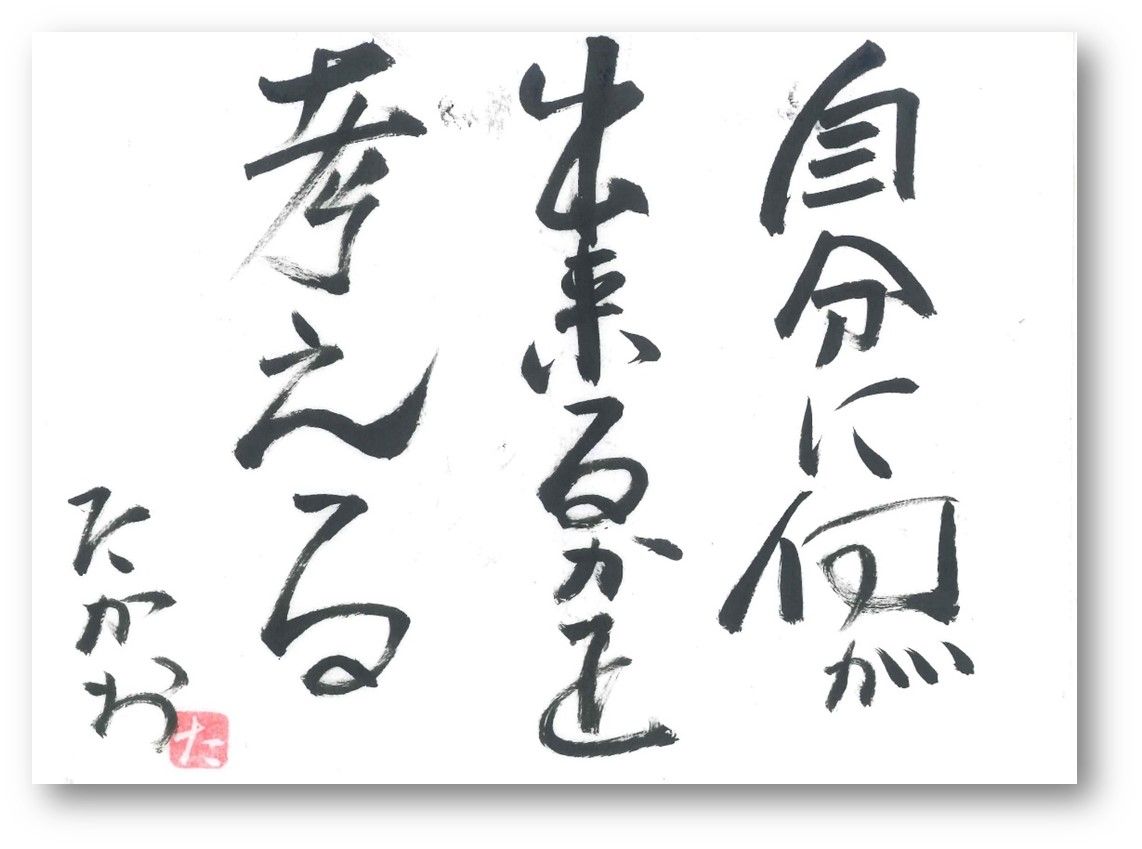 自分に何が
出来るかを
考える
たかお
た